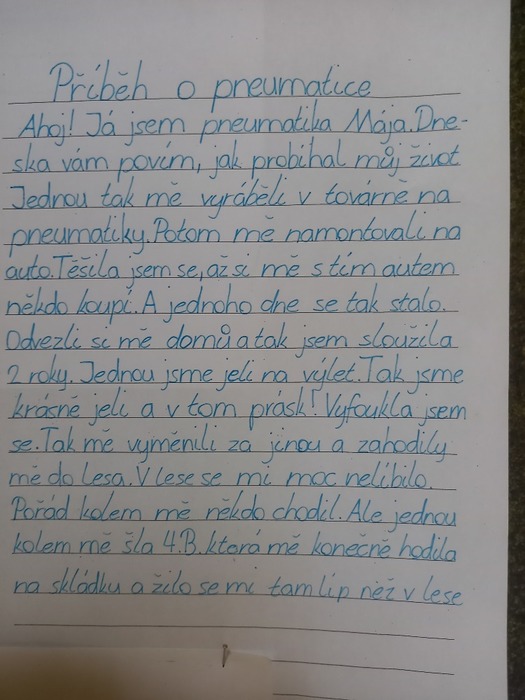 Příběh o pneumatice
Ahoj! Já jsem pneumatika Mája. Dne-
ska vám povím, jak probíhal můj život
Jednou tak mě vyráběli v továrně na
pneumatiky. Potom mě namontovali na
auto. Těšila jsem se, až si mě s tím autem
někdo koupí. A jednoho dne se tak stalo.
Odvezli si mě domů a tak jsem sloužila
2 roky. Jednou jsme jeli na výlet. Tak jsme
krásně jeli a v tom prásk! Vyfoukla jsem
se. Tak mě vyměnili za jinou a zahodily
mě do lesa. V lese se mi moc nelíbilo.
Pořád kolem mě někdo chodil. Ale jednou
kolem mě šla 4.B. která mě konečně hodila
na skládku a žilo se mi tam líp než v lese